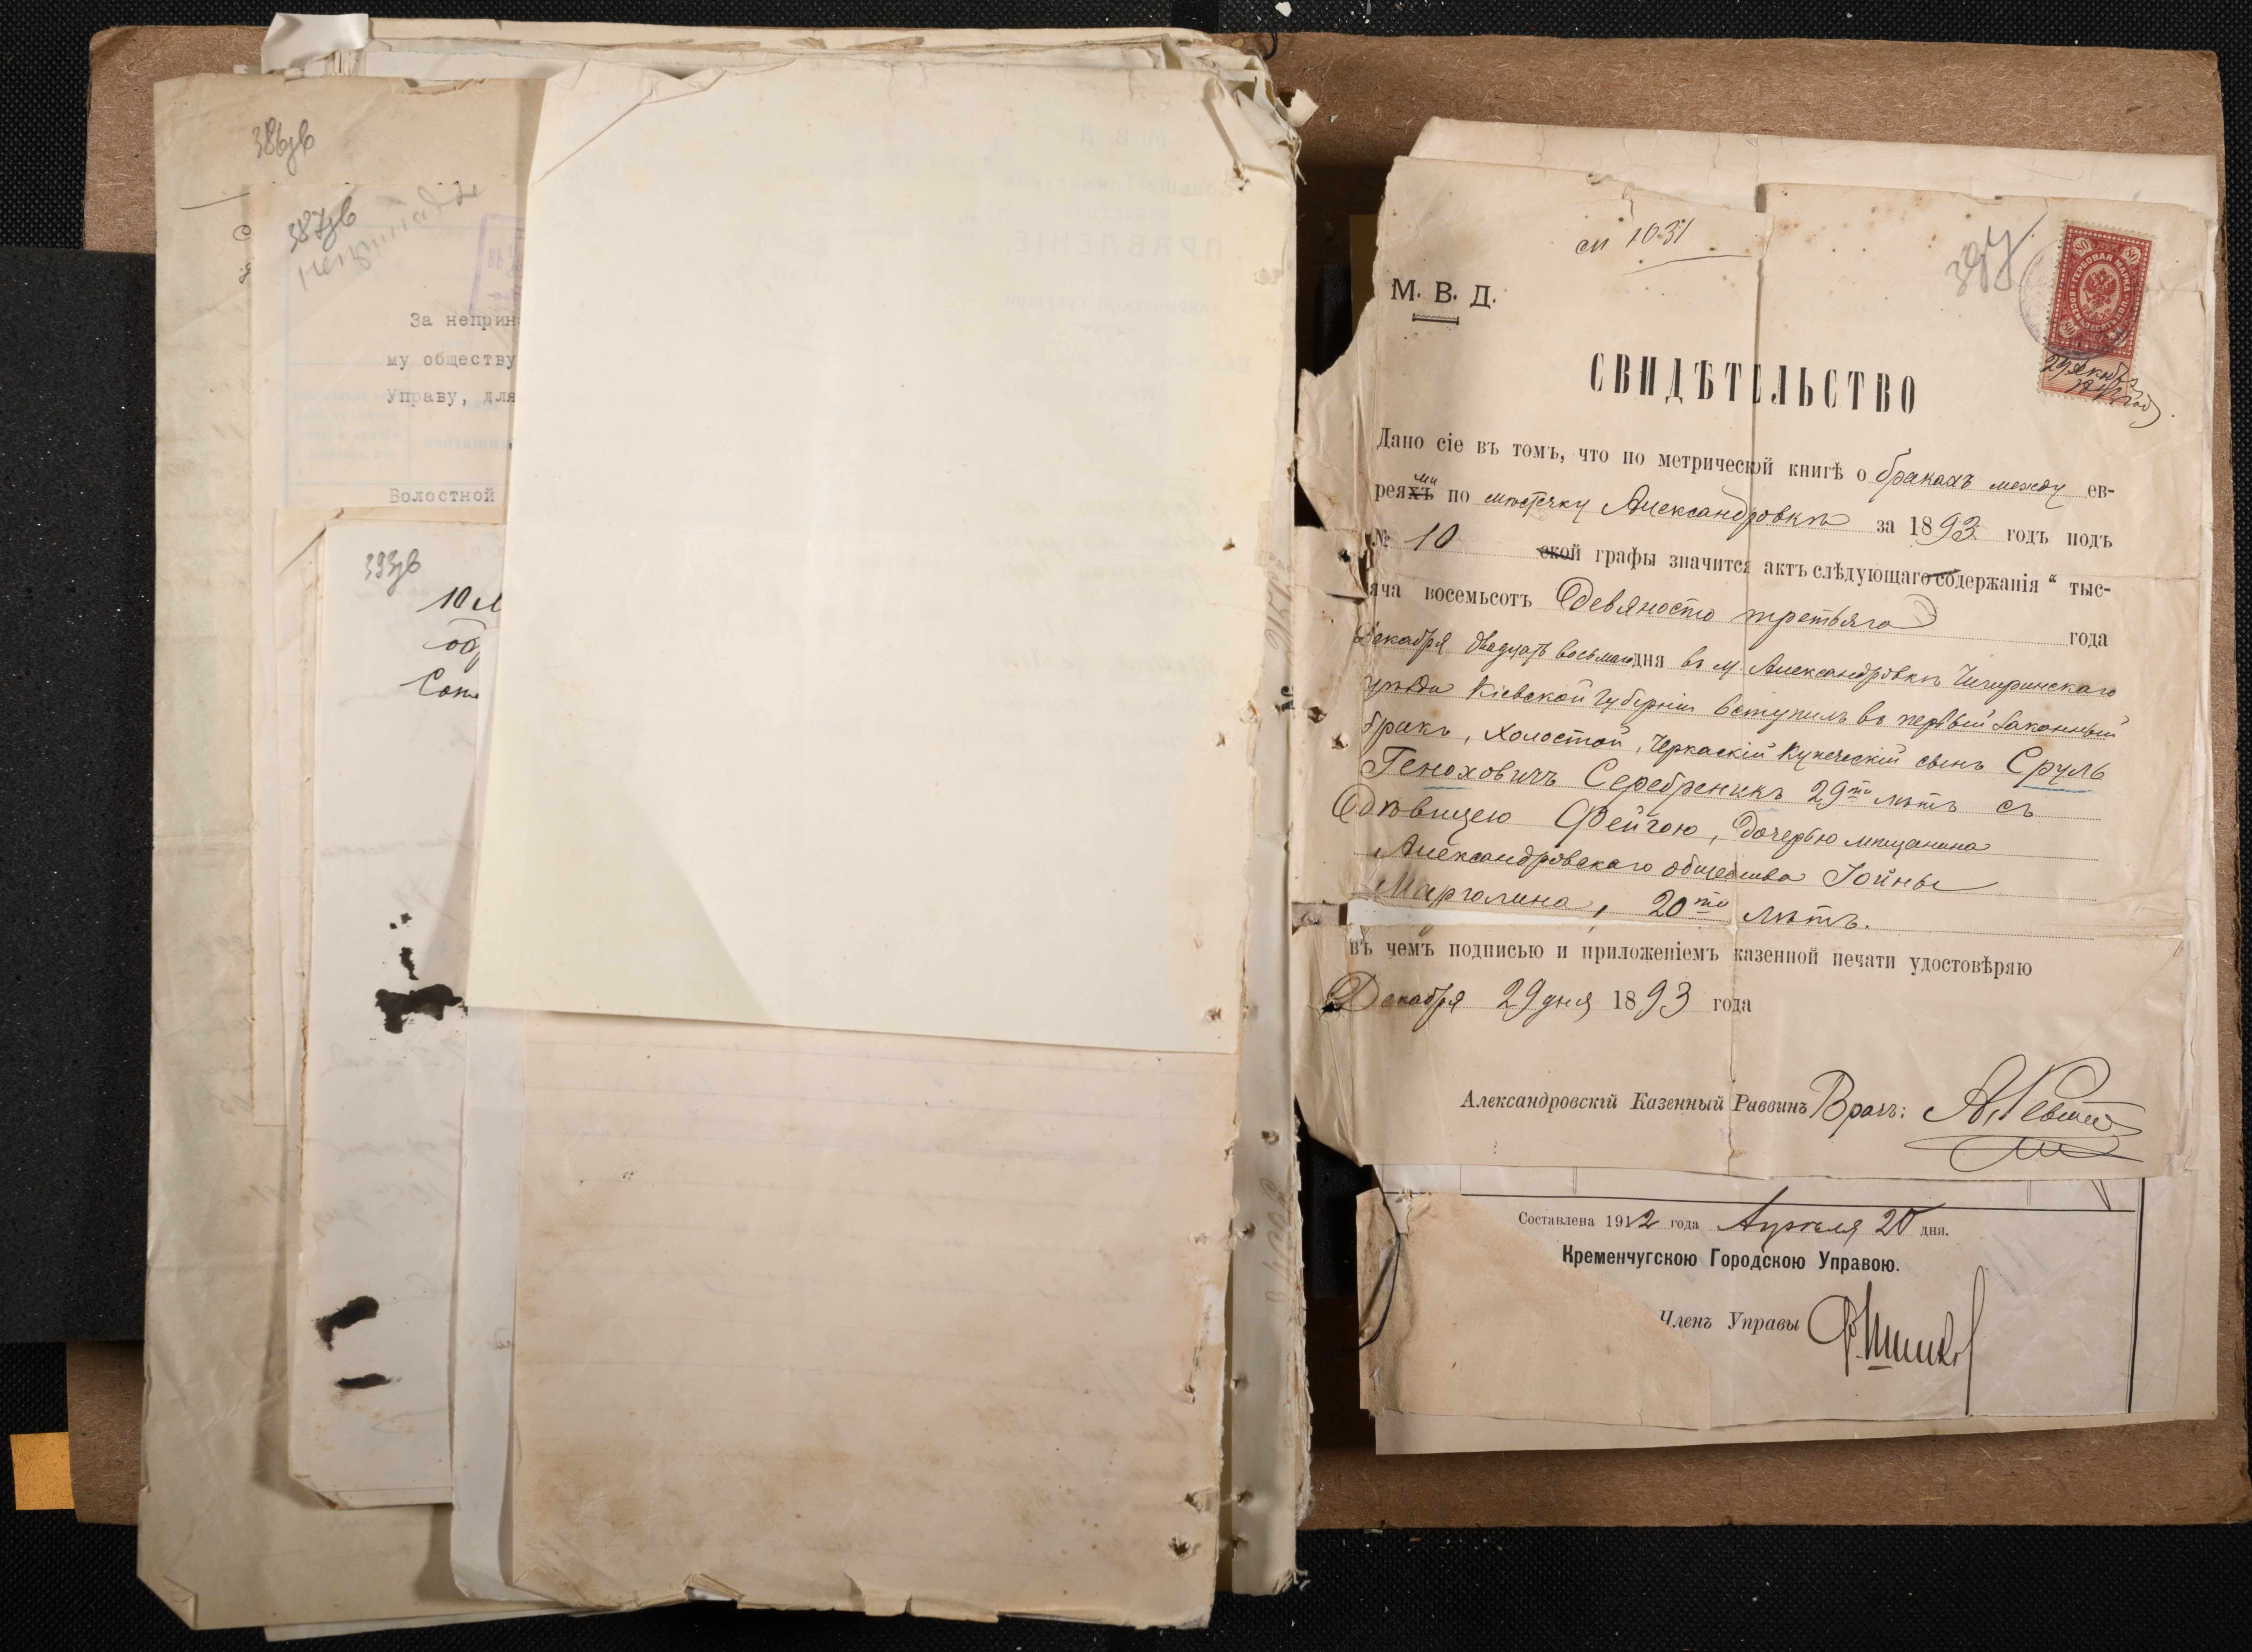 386зв
387зв
За неприн
му обществу
Управу, для
Волостной
393зв
10
об
Сом
394
ст 1031
М. В. Д.
80 ГЕРБОВАЯ МАРКА 80
29 декабря
1893 года
СВИДѢТЕЛЬСТВО
Дано сіе въ томъ, что по метрической книгѣ о бракахъ между ев-
реяхъ ми по мѣстечку Александровкѣ за 1893 годъ подъ
№ 10 ской графы значится актъ слѣдующаго содержанія “ тыс-
яча восемьсотъ Девяносто третьяго года
Декабря двадцать восьмаго дня въ м. Александровкѣ Чигиринскаго
уѣзда Кіевской губерніи вступилъ въ первый законный
бракъ, холостой, Черкаскій Купеческій сынъ Сруль
Геноховичъ Серебреникъ 29ти лѣтъ съ
Дѣвицею Фейгою, дочерью мѣщанина
Александровскаго общества Іойны
Марголина, 20ти лѣтъ.
въ чемъ подписью и приложеніемъ казенной печати удостовѣряю
Декабря 29 дня 1893 года
Александровскій Казенный Раввинъ Врачъ:
Составлена 1912 года Апрѣля 20 дня.
Кременчугскою Городскою Управою.
Членъ Управы